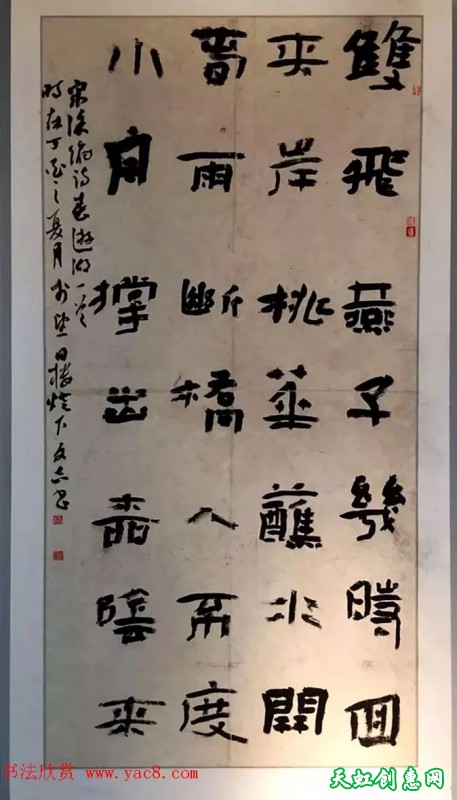 雙飛燕子幾時回
夾岸桃華蘸水開
春雨斷橋人不度
小舟撑出柳陰來
宋徐俯詩春游湖一首
時在丁亥之夏月於望日樓燈下
书法欣赏 www.yac8.com
天虹创意网